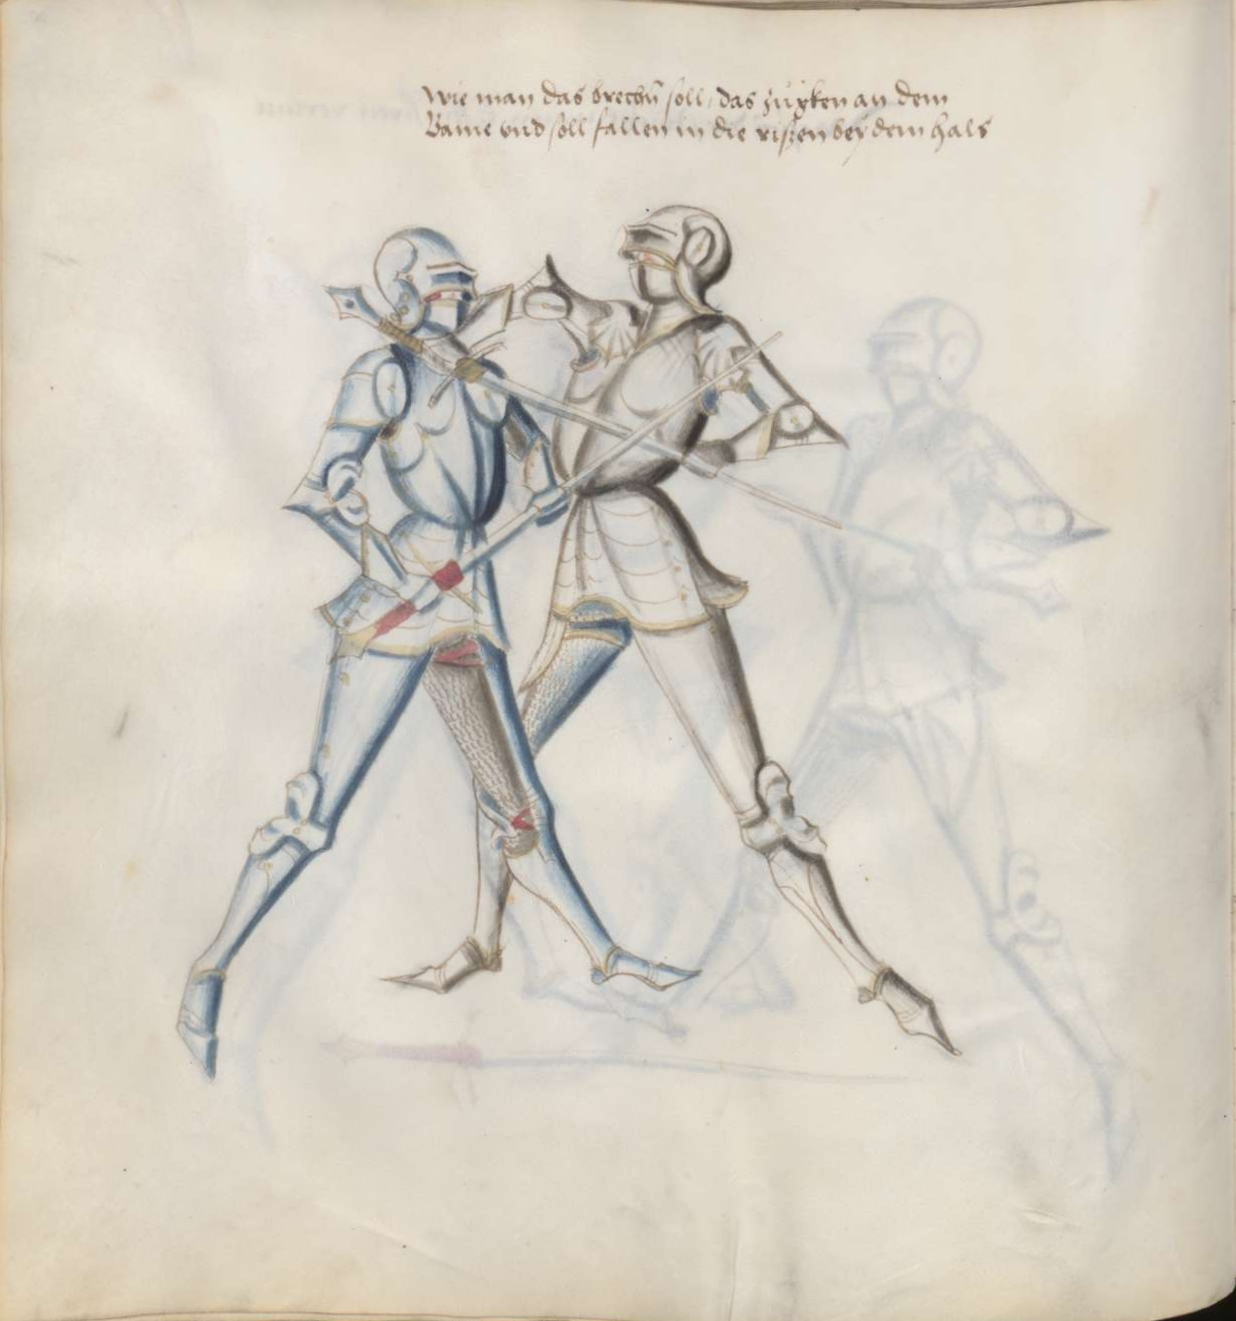 Wie man das brechñ soll, das zugken an dem
Baine vnd soll fallen in die rißen bey dem hals